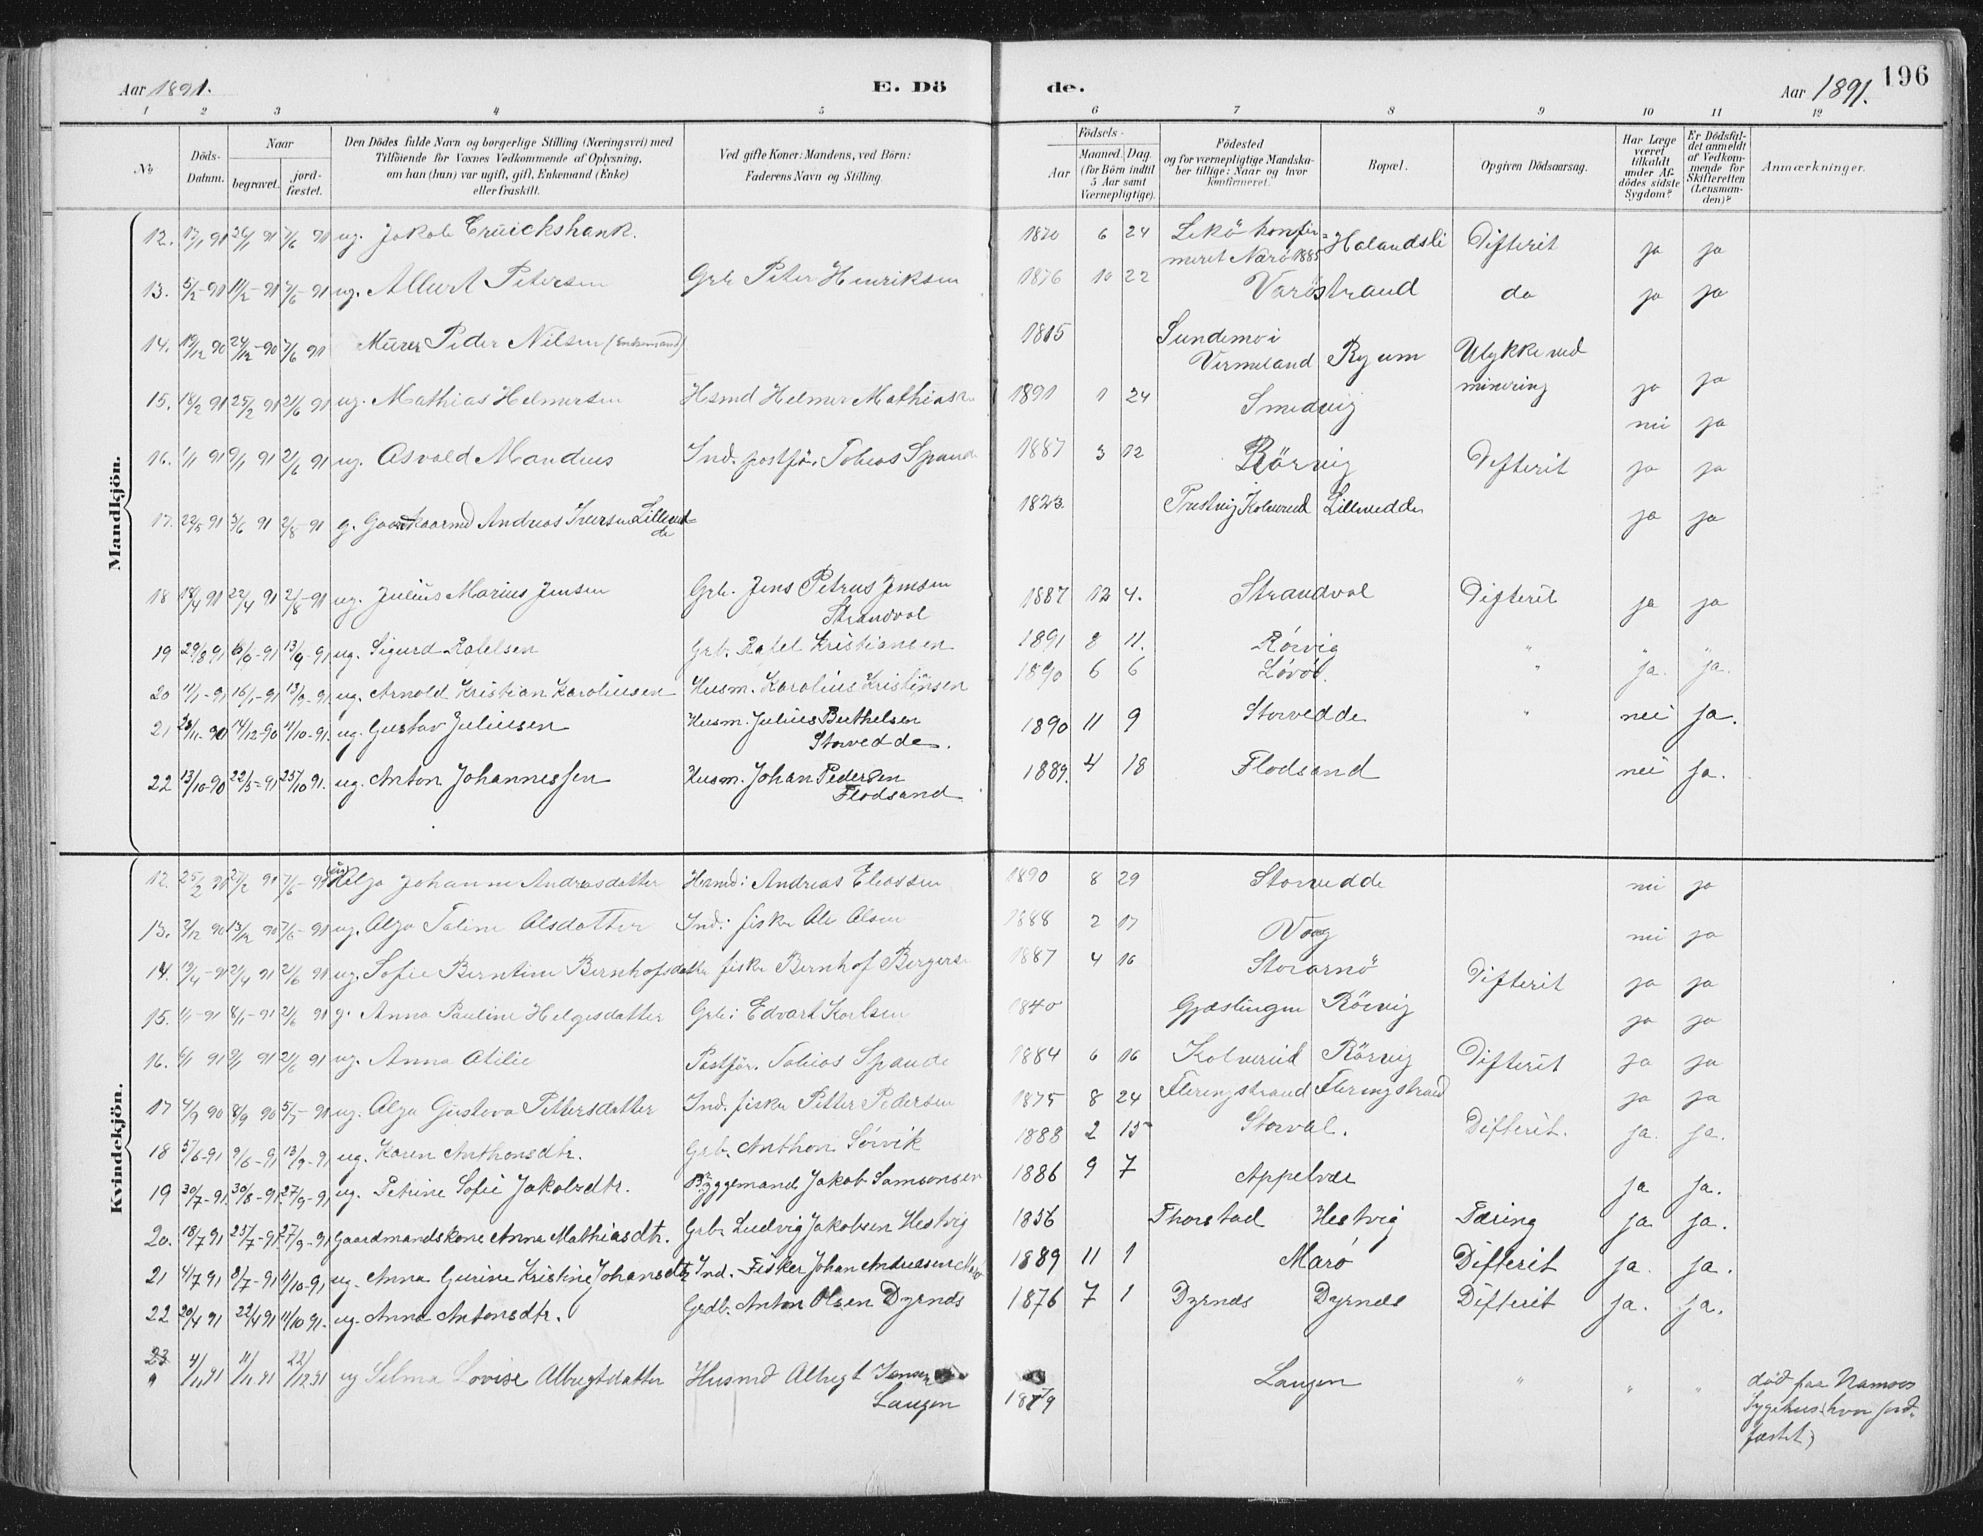 Aar 1891. E. Dö de. Aar 1891. 196
1 2 3 4 5 6 7 8 9 10 11 12
No Döds-Datum. Naar begravet. jord-fæstet. Den Dödes fulde Navn og borgerlige Stilling (Næringsvei) med Tilföiende for Voxnes Vedkommende af Oplysning, om han (hun) var ugift, gift, Enkemand (Enke) eller fraskilt. Ved gifte Koner: Mandens, ved Börn: Faderens Navn og Stilling. Födsels- Aar Maaned. Dag. (for Börn indtil 5 Aar samt Værnepligtige). Födested og for værnepligtige Mandskaber tillige: Naar og hvor konfirmeret. Bopæl. Opgiven Dödsaarsag. Har Læge været tilkaldt under Afdödes sidste Sygdom? Er Dödsfaldet anmeldt af Vedkommende for Skifteretten (Lensmanden)? Anmærkninger.
Mandkjön.
12. 17/1 91 26/1 91 7/6 91 ug. Jakob Cruickshank. 1870 6 24 Lekö konfir=meret Nærö 1885 Halandsli Difterit ja ja
13. 5/2-91 11/2-91 7/6-91 ug. Albert Petersen Grb Peter Henriksen 1876 10 22 Varöstrand do ja ja
14. 19/12 90 24/12-90 7/6 91 Murer Peder Nilsen (Enkemand) 1815 Sundemo i Vermeland Ryum Ulykke ved minering ja ja
15. 18/2 91 25/2 91 21/6 91 ug. Mathias Helmersen Hsmd Helmer Mathiasen 1891 1 24 Smedvig nei ja
16. 1/1 91 9/1 91 2/6 91 ug. Asvald Mandius Ind. postför. Tobias Spande 1887 3 12 Rörvig Difterit ja ja
17. 22/5 91 3/6 91 2/8 91 g. Gaardkaarmd Andreas Iversen Lillevedde 1823 Kolvereid Lillevedde ja ja
18 18/4 91 22/4 91 2/8-91 ug. Julius Marius Jensen Grb. Jens Petrus Jensen Strandval 1887 12 4. Strandval Difterit ja ja
19 29/8 91 6/9-91 13/9-91 ug. Sigurd Rafelsen Grb. Rafel Kristiansen 1891 8 11. Rörvig " " "
20 11/1-91 16/1-91 13/9-91 ug. Arnold Kristian Karoliusen Husm. Karolius Kristinsen 1890 6 6 Lövöl. " ja. ja.
21 28/11-90 14/12-90 11/10-91. ug. Gustav Juliusen Husm. Julius Berthelsen Storvedde. 1890 11 9 Storvedde " nei ja.
22 13/10-90 22/5-91 25/10 91. ug. Anton Johannessen Husm. Johan Pedersen Flodsand 1889. 4 18 Flodsand nei ja.
Kvindekjön.
12. 25/2 91 27/2 91 7/6-91 Helga Johanne Andreasdatter Hsmd: Andreas Eliassen 1890 8 29 Storvedde nei ja
13. 3/12 90 13/12 90 7/6-91 ug. Alga Taline Olsdatter Ind: fisker Ole Olsen 1888 2 17 Vaag nei ja
14. 19/4-91 2/4 91 2/6 91 ug. Sofie Berntine Bernhofsdatter fisker Bernhof Bergersen 1887 4 16 Storarnö Difterit ja ja
15. 1/1-91 8/1-91 21/6 91 g. Anna Pauline Helgesdatter Grb: Edvart Karlsen 1840 Gjæslingen Rörvig ja ja
16. 6/1 91 9/1 91 2/6 91 ug. Anna Otilie Postför. Tobias Spande 1884 6 16 Kolvereid Rörvig Difterit ja ja
17 4/9 90 8/9 90 5/7-91 ug. Olga Gustava Pettersdatter Ind. fisker Petter Pedersen 1875 8 24 Fleringstrand Fleringstrand ja ja
18 5/6-91 9/6-91 13/9-91 ug. Karen Anthonsdtr. Grb. Anthon Sörvik 1888 2 15 Storval. Difterit. ja. ja.
19 30/7-91. 30/8-91. 27/9-91 ug. Petrine Sofie Jakobsdtr. Byggemand Jakob Samsonsen 1886 9 7 Appelvær ja ja.
20. 18/7 91 25/7-91 27/9-91 Gaardmandskone Anna Mathiasdtr. Grbr Ludvig Jakobsen Hestvig 1856 Thorstad Hestvig Tæring ja ja.
21 4/7 91 8/7-91 11/10-91 ug. Anna Gurine Kristine Johansdtr Ind. Fisker Johan Andreasen Marö 1889 11 1 Marö Difterit ja. ja.
22 20/4 91 22/4 91 11/10 91. ug. Anna Antonsdtr. Grdb. Anton Olsen Dyrnes 1876 7 1 Dyrnes Dyrnes Difterit ja. ja.
23 9 4/11 91 11/11 91 22/12 91 ug Selma Lovise Albregtdatter Husmd Albregt Jensen Laugen 1879 Laugen " " " död paa Namsos Sygehus (hvor jord-fæstet)